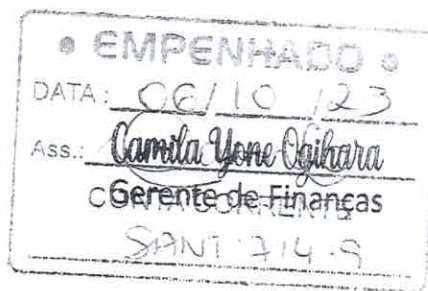 • EMPENHADO •
DATA: 06/10/23
Ass.: Camila Yone Ogihara
Gerente de Finanças
CONTA CORRENTE
SANT 714-9